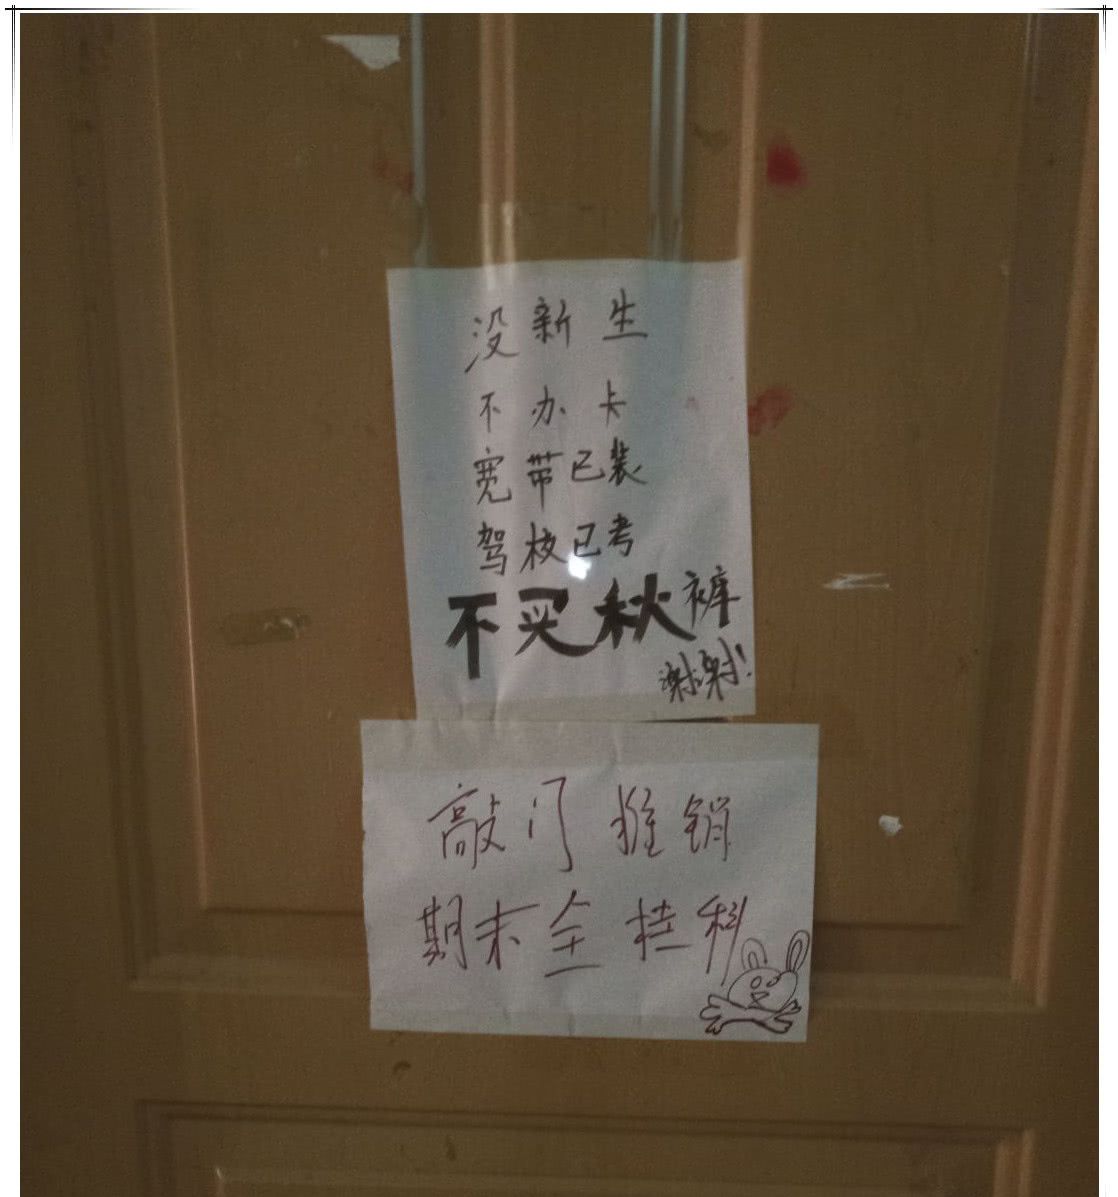 没新生
不办卡
宽带已装
驾校已考
不买秋裤
谢谢!
敲门推销
期末全挂科